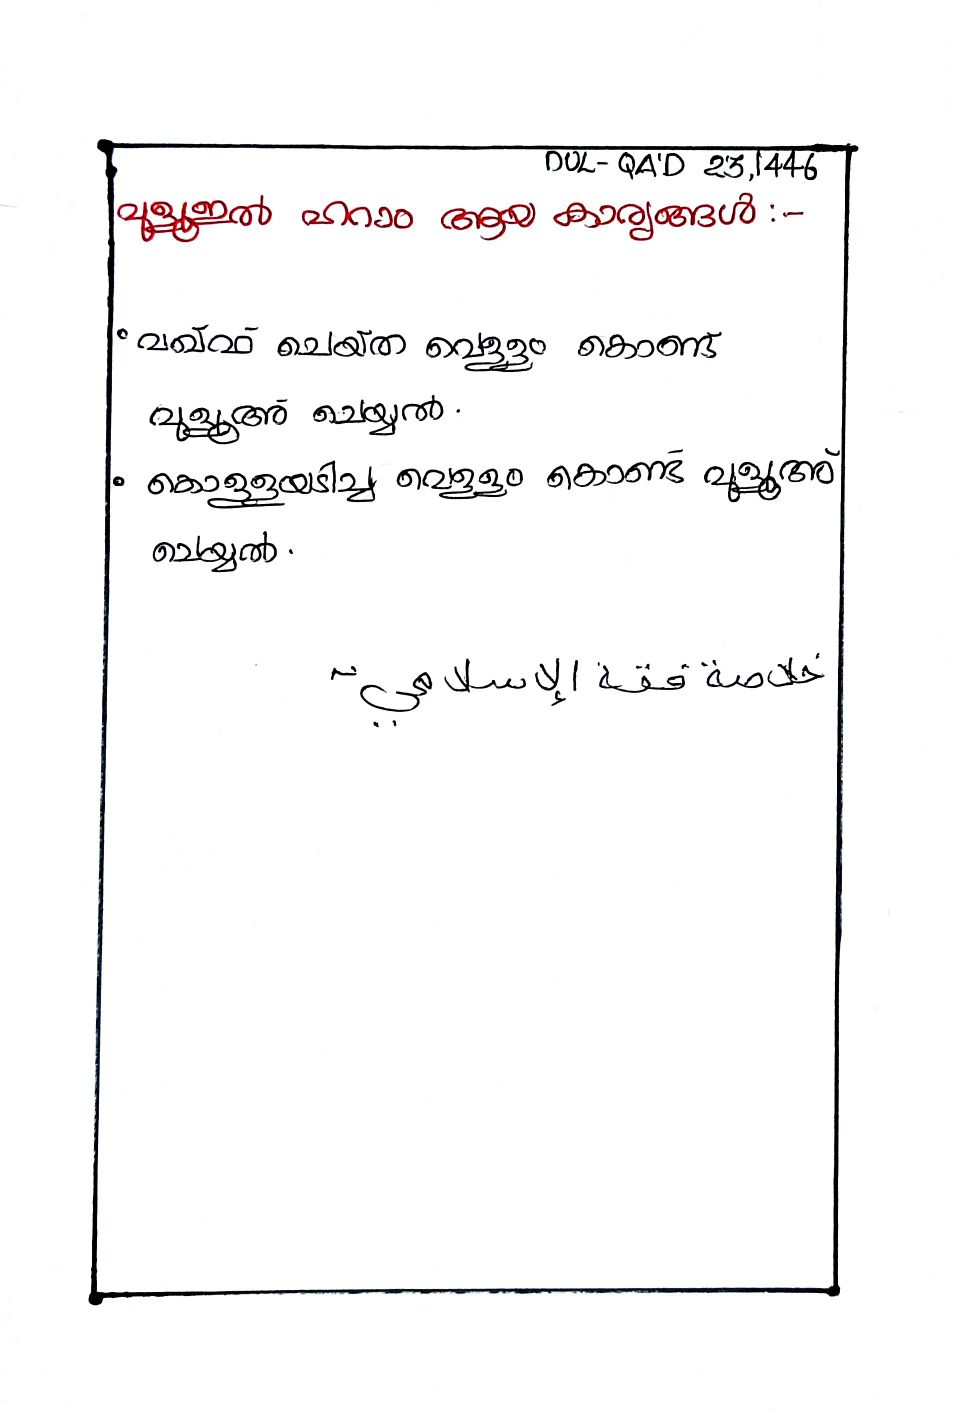 DUL-QA'D 23,1446
വുളൂഇൽ ഹറാം ആയ കാര്യങ്ങൾ :-
• വഖ്ഫ് ചെയ്ത വെള്ളം കൊണ്ട്
വുളൂഅ് ചെയ്യൽ.
• കൊള്ളയടിച്ച വെള്ളം കൊണ്ട് വുളൂഅ്
ചെയ്യൽ.
خلاصة فقه الإسلامي~